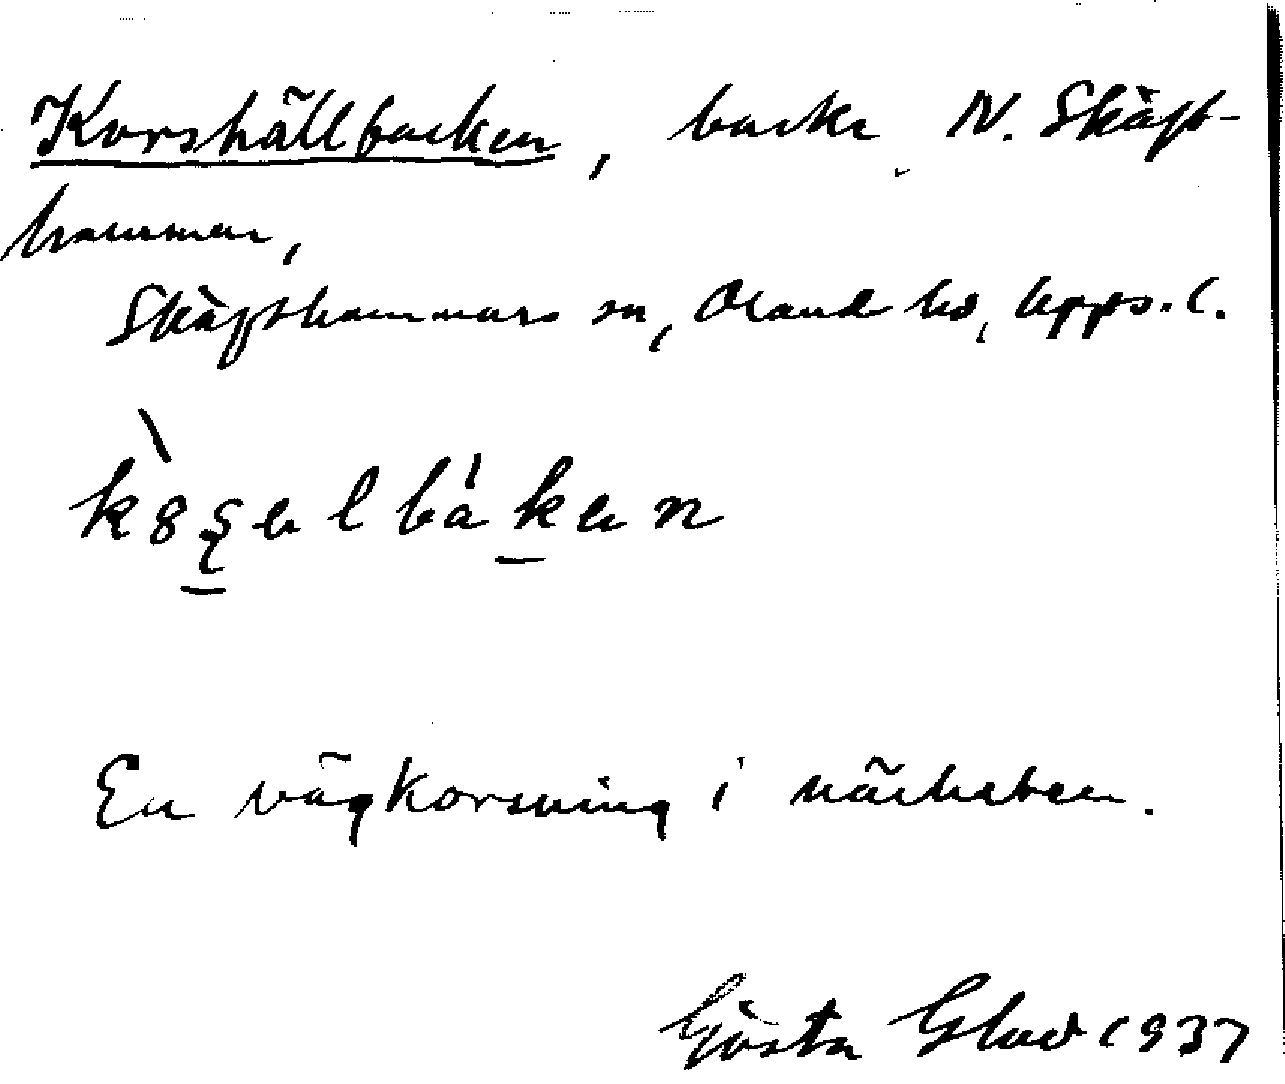 Korshällbacken, backe N. Skäft-
hammar,
Skäfthammars sn, Olands hd, Upps. l.
En vägkorsning i närheten.
Gösta Glad 1937